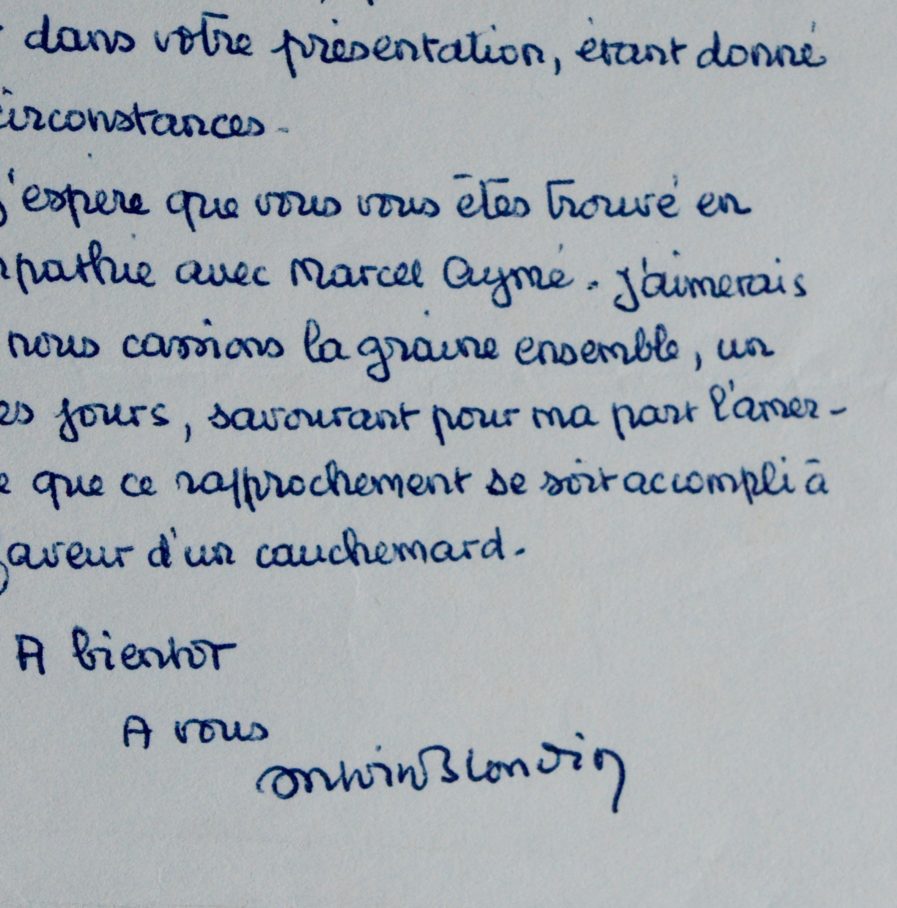 dans votre présentation, étant donné
circonstances.
j'espère que vous vous êtes trouvé en
pathie avec Marcel Aymé. J'aimerais
nous cassions la graine ensemble, un
es jours, savourant pour ma part l'amer-
e que ce rapprochement se soit accompli à
faveur d'un cauchemard.
A bientôt
A vous
Antoine Blondin